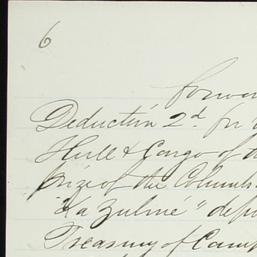 6
Deduction 2d. for
Hull & Cargo of th
prize of the Columb
"La Zulmé" depo
Treasury of Camp